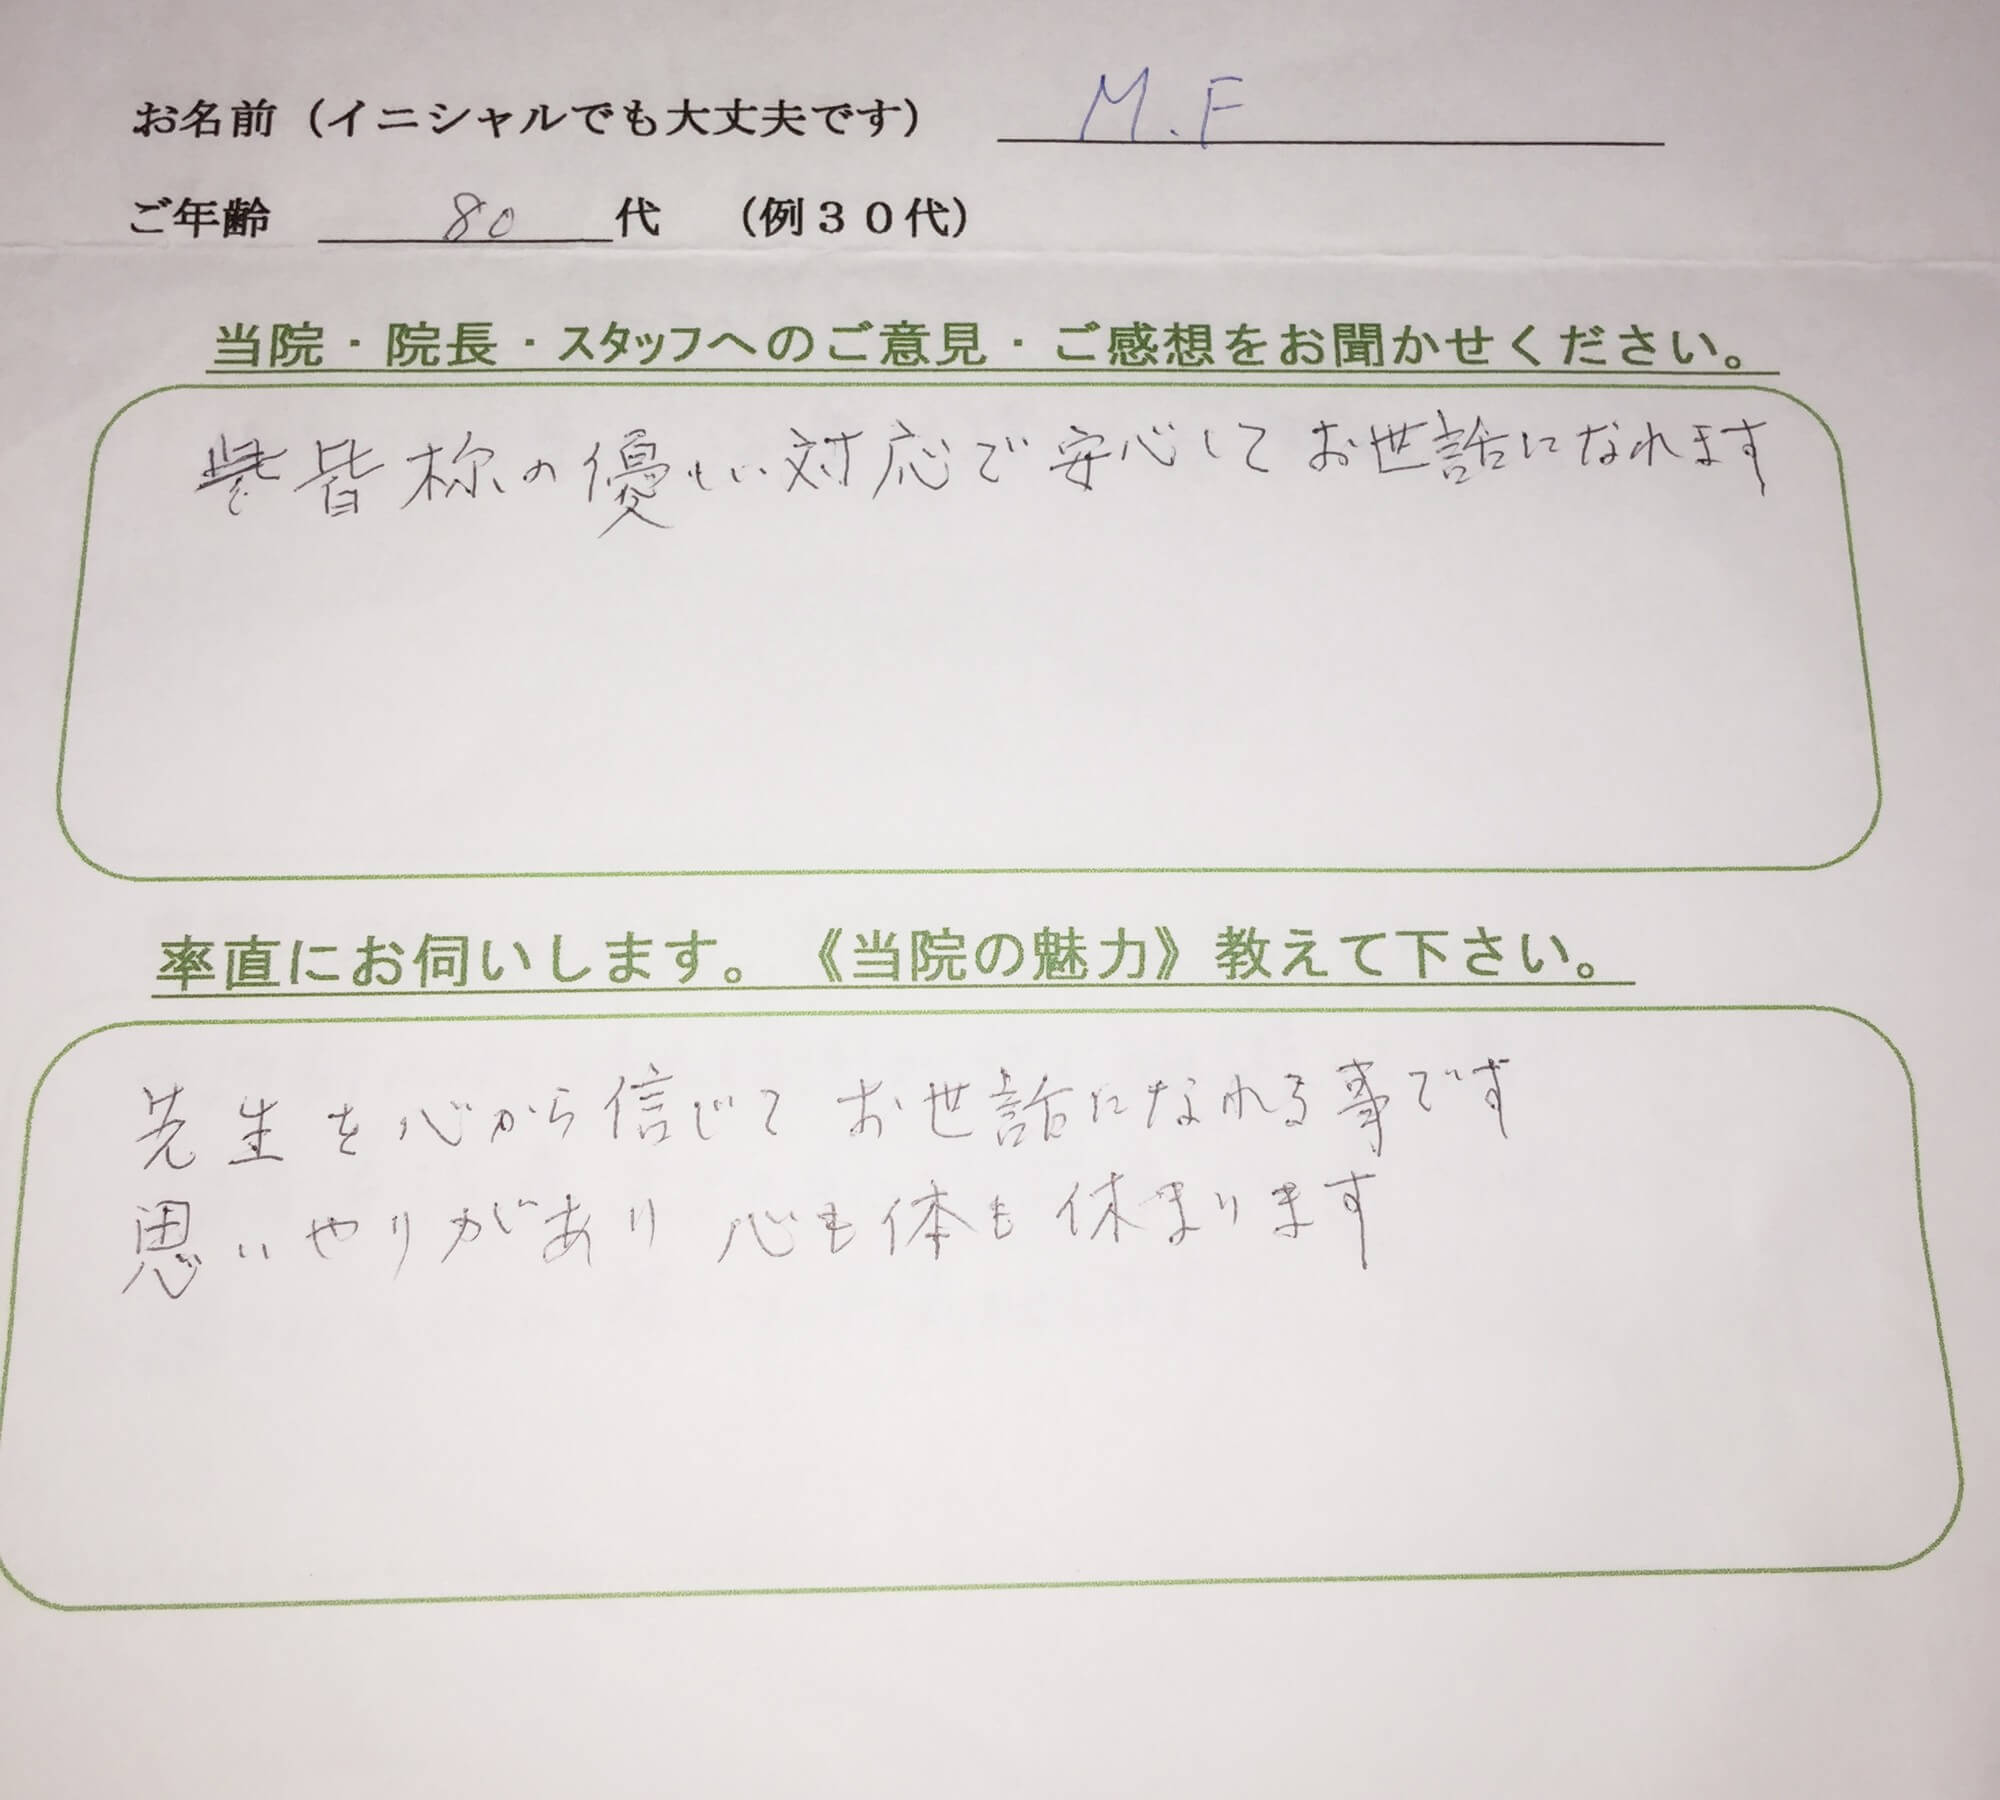 お名前（イニシャルでも大丈夫です） M.F
ご年齢 80 代 （例３０代）
当院・院長・スタッフへのご意見・ご感想をお聞かせください。
皆様の優しい対応で安心してお世話になれます
率直にお伺いします。《当院の魅力》教えて下さい。
先生を心から信じて お世話になれる事です
思いやりがあり 心も体も休まります